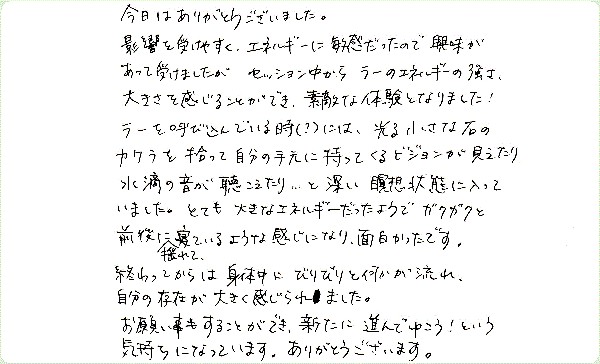 今日はありがとうございました。
影響を受けやすく、エネルギーに敏感だったので興味が
あって受けましたが セッション中から ラーのエネルギーの強さ、
大きさを感じることができ、素敵な体験となりました!
ラーを呼び込んでいる時(?)には、光る小さな石の
カケラを拾って自分の手元に持ってくるビジョンが見えたり
水滴の音が聴こえたり…と深い瞑想状態に入って
いました。とても大きなエネルギーだったようでガクガクと
前後に揺れて、寝ているような感じになり、面白かったです。
終わってからは身体中にびりびりと何かが流れ、
自分の存在が大きく感じられました。
お願い事もすることができ、新たに進んでゆこう!という
気持ちになっています。ありがとうございます。